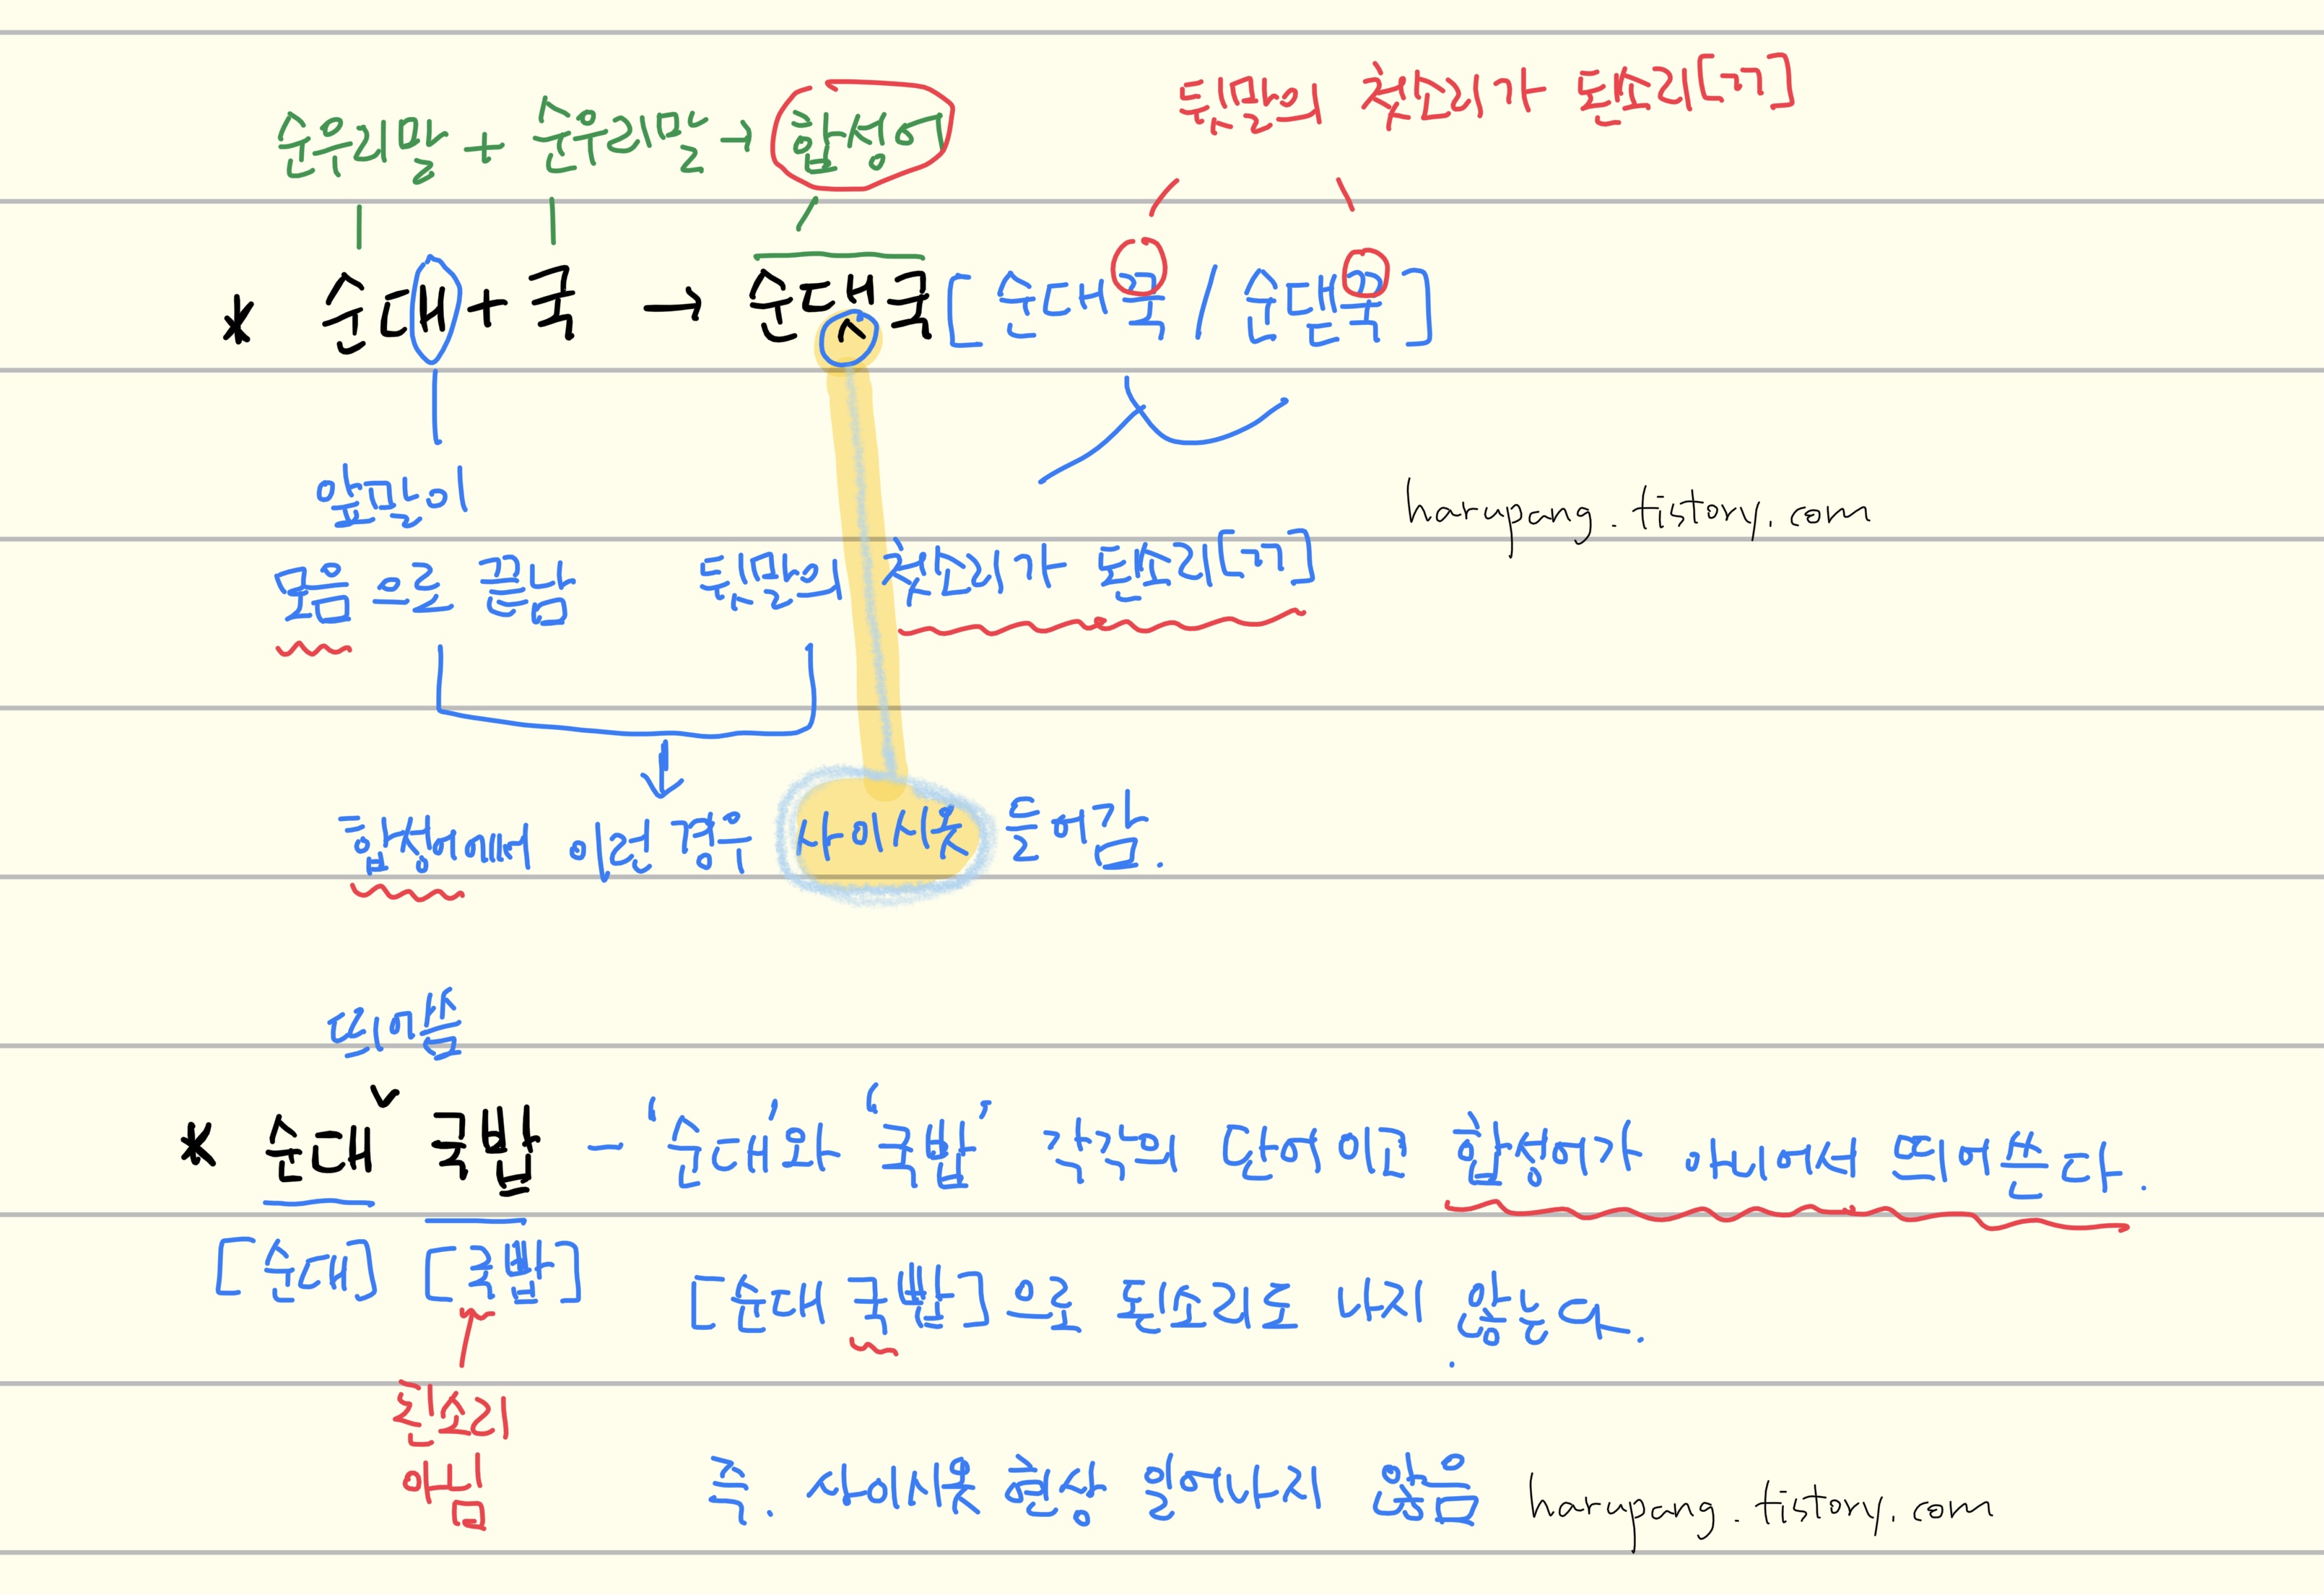 순우리말 + 순우리말 → 합성어
뒷말의 첫소리가 된소리[ㄲ]
* 순대 + 국 → 순댓국 [순대꾹 / 순댇꾹]
앞말이
모음으로 끝남
뒷말의 첫소리가 된소리[ㄲ]
harupang.tistory.com
합성어에서 이런 경우 사이시옷 들어감.
띄어씀
* 순대 ∨ 국밥 - '순대'와 '국밥' 각각의 단어이고 합성어가 아니어서 띄어쓴다.
[순대] [국빱]
[순대 국빱]으로 된소리도 나지 않는다.
된소리
아님
즉. 사이시옷 현상 일어나지 않음
harupang.tistory.com